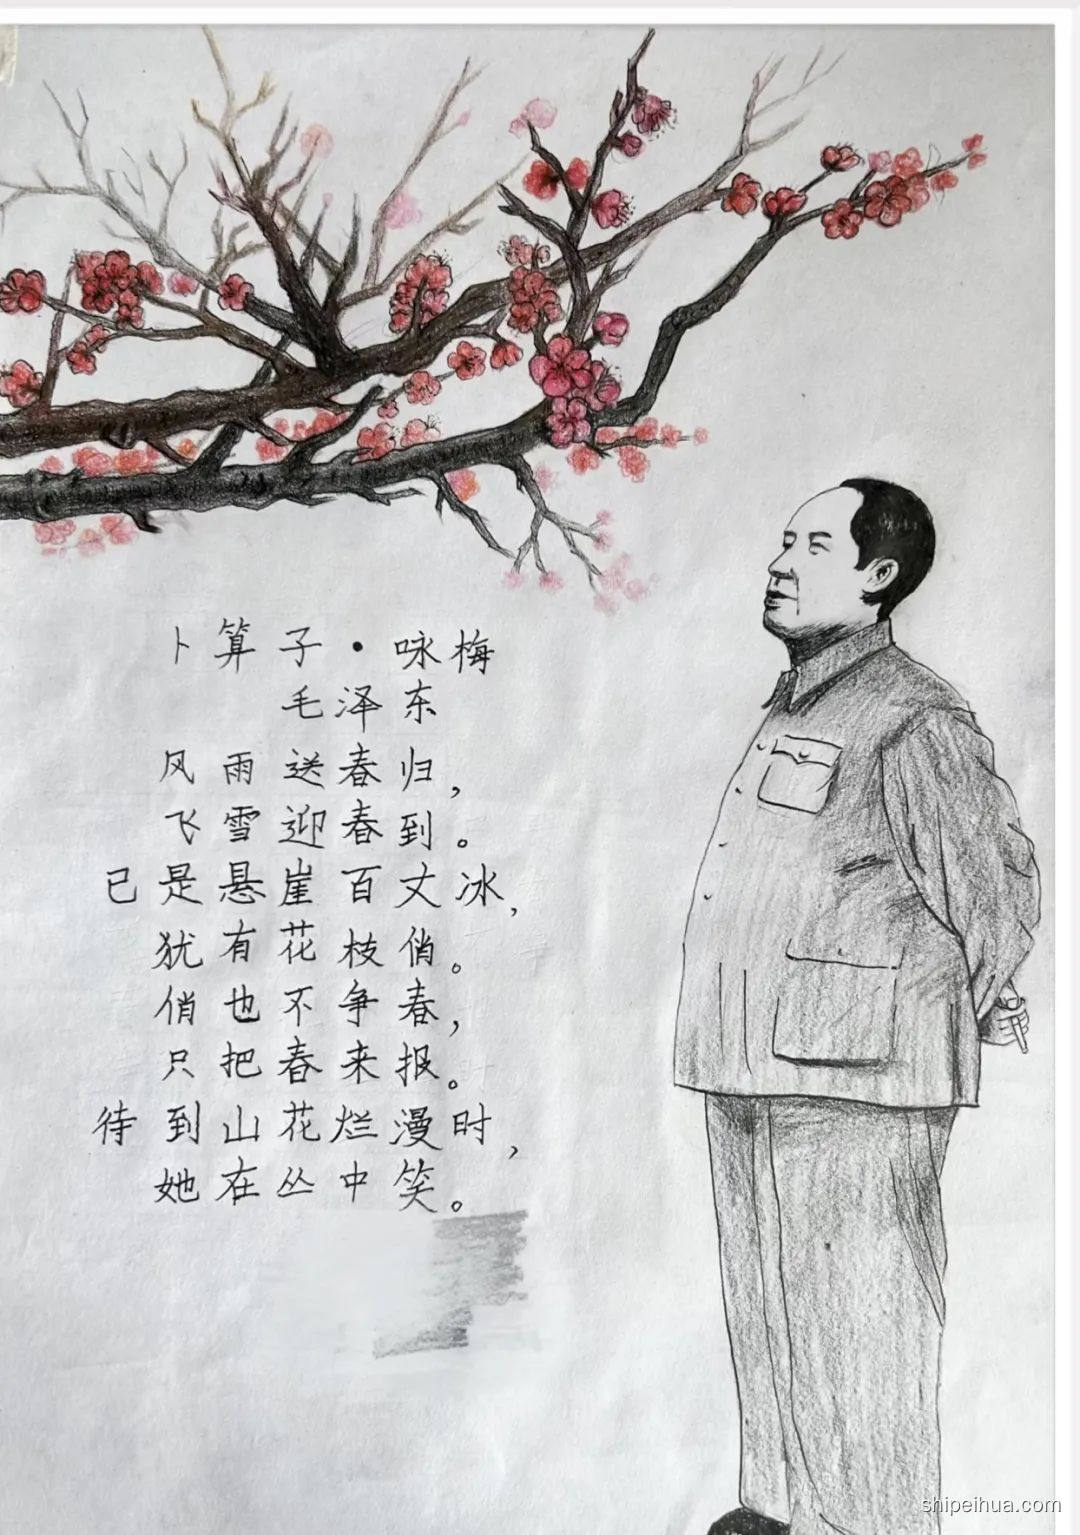 卜算子·咏梅
毛泽东
风雨送春归，
飞雪迎春到。
已是悬崖百丈冰，
犹有花枝俏。
俏也不争春，
只把春来报。
待到山花烂漫时，
她在丛中笑。
shipeihua.com